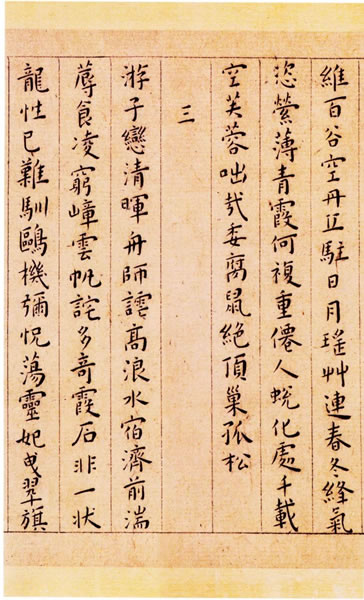 維百谷空丹丘駐日月瑤艸連春冬絳氣
恣縈薄青霞何複重僊人蛻化處千載
空芙蓉咄哉委腐鼠絶頂巢孤松
三
游子戀清暉舟師高浪水宿濟前湍
蓐食凌窮嶂雲帆詫多奇霞石非一狀
龍性已難馴鷗機彌怳蕩靈妃曳翠旗